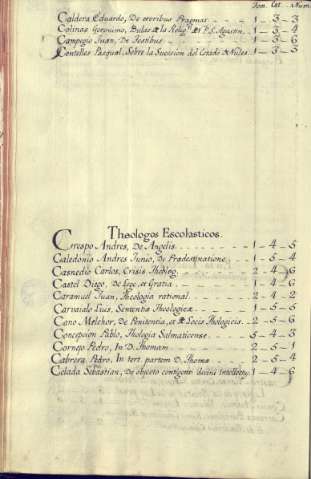 Tom. Est. Num.
Caldera Eduardo, De erroribus Pragmat. 1-3-3
Colinas Geronimo, Bulas de la Relig.n de P.S. Agustin. 1-3-4
Campegio Juan, De Testibus 1-3-6
Centelles Pasqual, Sobre la Sucesion del Estado de Nules. 1-3-3
Theologos Escolasticos.
Crespo Andres, De Angelis. 1-4-5
Caledonio Andres Junio, de Prædestinatione. 1-5-4
Casnedio Carlos, Crisis Theolog. 2-4-6
Castel Diego, de Lege, et Gratia 1-4-6
Caramuel Juan, Theologia rational. 2-4-2
Carvaialo Luis, Sententia Theologica 1-5-6
Cano Melchor, de Penitentia, et de Locis Thologicis. 2-5-6
Concepcion Pablo, Thologia Salmaticense 5-4-3
Cornejo Pedro, In D. Thomam 2-5-1
Cabrera Pedro, In tert. partem D. Thomæ 2-5-4
Celada Sebastian, de objecto contigenti divini Intellectus 1-4-6